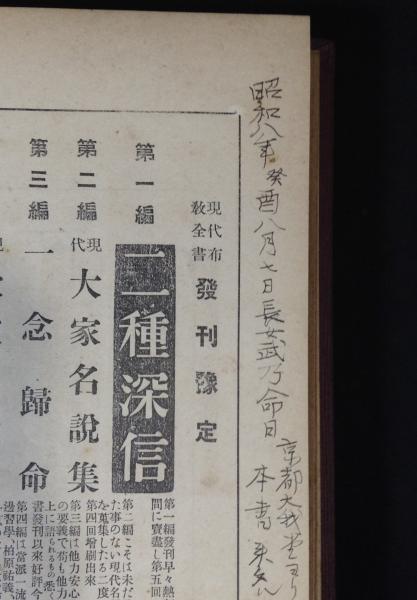 昭和八年癸酉八月七日長女武乃命日
京都大我堂ヨリ
本書来ル
現代布教全書 發刊豫定
第一編 二種深信
第二編 現代大家名說集
第三編 一念歸命
第一編發刊早々熱
間に賣盡し第五回
第二編こそは未だ
た事のない現代名
を蒐集したる二度
第四回增刷出來
第三編は他力安心
の要義で苟も他力
上に語られるもの悉く
書發刊以來好評今
第四編は當派一流
邊習學、柏原祐義、